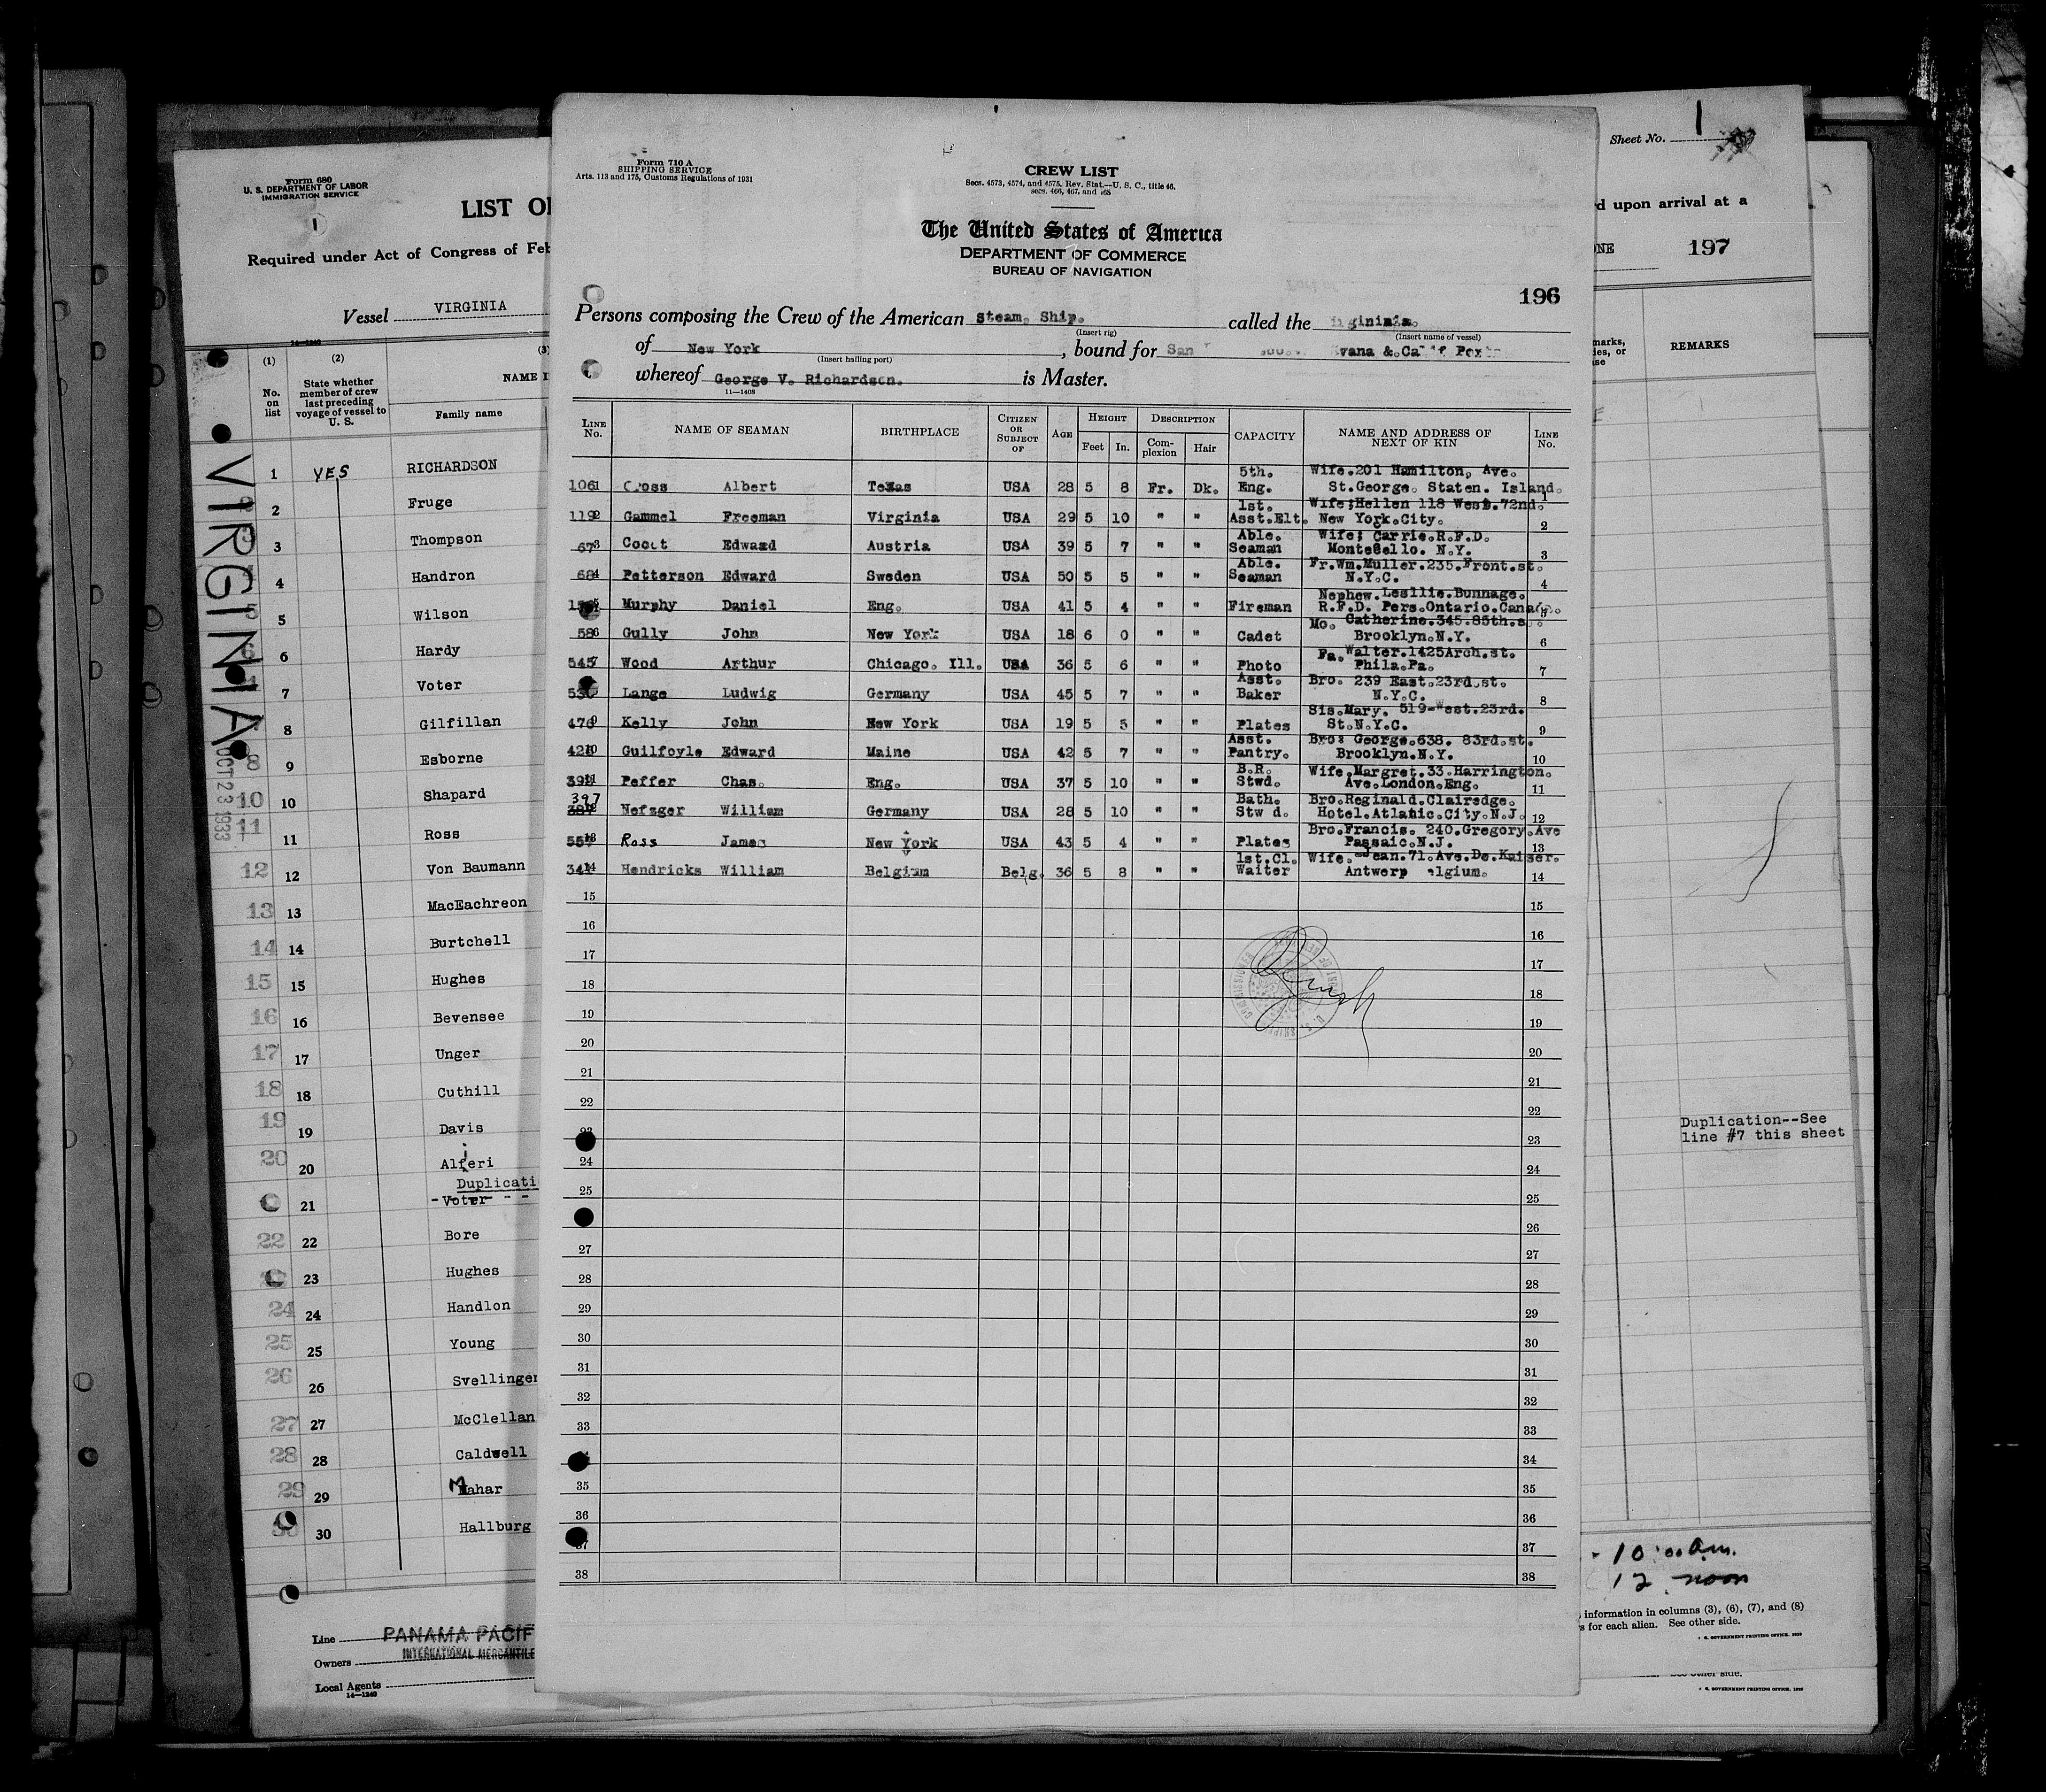 Form 680
U. S. DEPARTMENT OF LABOR
IMMIGRATION SERVICE
1
LIST O
Required under Act of Congress of Feb
Vessel VIRGINIA
14—1240
(1) (2) (3)
No. on list
State whether member of crew last preceding voyage of vessel to U. S.
NAME I
Family name
VIRGINIA
OCT 23 1933
1 YES RICHARDSON
2 Fruge
3 Thompson
4 Handron
5 5 Wilson
6 6 Hardy
7 Voter
8 Gilfillan
8 9 Esborne
10 10 Shapard
11 11 Ross
12 12 Von Baumann
13 13 MacEachreon
14 14 Burtchell
15 15 Hughes
16 16 Bevensee
17 17 Unger
18 18 Cuthill
19 19 Davis
20 20 Alferi
i
Duplicati
21 -Voter - -
22 22 Bore
23 Hughes
24 24 Handlon
25 25 Young
26 26 Svellinger
27 27 McClellan
28 28 Caldwell
29 29 Mahar
30 30 Hallburg
Line PANAMA PACIF
Owners INTERNATIONAL MERCANTILE
Local Agents
14—1240
Form 710 A
SHIPPING SERVICE
Arts. 113 and 175, Customs Regulations of 1931
CREW LIST
Secs. 4573, 4574, and 4575, Rev. Stat.—U. S. C., title 46,
secs. 466, 467, and 468
The United States of America
DEPARTMENT OF COMMERCE
BUREAU OF NAVIGATION
196
Persons composing the Crew of the American Steam. Ship. called the irgininia.
(Insert rig) (Insert name of vessel)
of New York, bound for San vana & Calif Ports
(Insert hailing port)
whereof George V. Richardson. is Master.
11—1408
LINE No. NAME OF SEAMAN BIRTHPLACE CITIZEN OR SUBJECT OF AGE HEIGHT Feet In. DESCRIPTION Complexion Hair CAPACITY NAME AND ADDRESS OF NEXT OF KIN LINE No.
5th. Wife.201 Hamilton, Ave.
106 1 Cross Albert Texas USA 28 5 8 Fr. Dk. Eng. St.George. Staten. Island. 1
1st. Wife;Hellen 118 West.72nd.
119 2 Gammel Freeman Virginia USA 29 5 10 " " Asst.Elt. New York.City. 2
Able. Wife; Carrie.R.F.D.
67 3 Edward Austria USA 39 5 7 " " Seaman Montecello. N.Y. 3
Able. Fr.Wm.Muller.235.Front.st.
68 4 Petterson Edward Sweden USA 50 5 5 " " Seaman N.Y.C. 4
Nephew.Lesilie.Bunnage.
5 Murphy Daniel Eng. USA 41 5 4 " " Fireman R.F.D. Pers.Ontario.Canada. 5
Mo. Catherine.345.85th.s
58 6 Gully John New York USA 18 6 0 " " Cadet Brooklyn.N.Y. 6
Fa.Walter.1425Arch.st.
545 7 Wood Arthur Chicago. Ill. USA 36 5 6 " " Photo Phila.Pa. 7
Asst. Bro. 239 East.23rd.st.
Lange Ludwig Germany USA 45 5 7 " " Baker N.Y.C. 8
Sis.Mary. 519-West.23rd.
476 9 Kelly John New York USA 19 5 5 " " Plates St.N.Y.C. 9
Asst. Bro: George.638. 83rd.st.
421 10 Guilfoyle Edward Maine USA 42 5 7 " " Pantry. Brooklyn.N.Y. 10
B.R. Wife.Margret.33.Harrington.
392 11 Peffer Chas. Eng. USA 37 5 10 " " Stwd. Ave.London.Eng. 11
397 Bath. Bro.Reginald.Clairedge.
12 Nefzger William Germany USA 28 5 10 " " Stw d. Hotel.Atlantic.City.N.J. 12
Bro.Francis. 240.Gregory.Ave
557 13 Ross James New York USA 43 5 4 " " Plates Passaic.N.J. 13
1st.Cl. Wife. Jean.71.Ave.De.Kaiser.
341 14 Hendricks William Belgium Belg. 36 5 8 " " Waiter Antwerp elgium. 14
15 15
16 16
17 17
18 18
19 19
20 20
21 21
22 22
23 23
24 24
25 25
26
27 27
28 28
29 29
30 30
31 31
32 32
33 33
34
35 35
36 36
37 37
38 38
Sheet No. 1
d upon arrival at a
ONE 197
marks,
ies, or
se
REMARKS
Duplication--See
line #7 this sheet
- 10:00 a.m.
12 noon
information in columns (3), (6), (7), and (8)
s for each alien. See other side.
U. S. GOVERNMENT PRINTING OFFICE
See other side.
U. S. GOVERNMENT PRINTING OFFICE